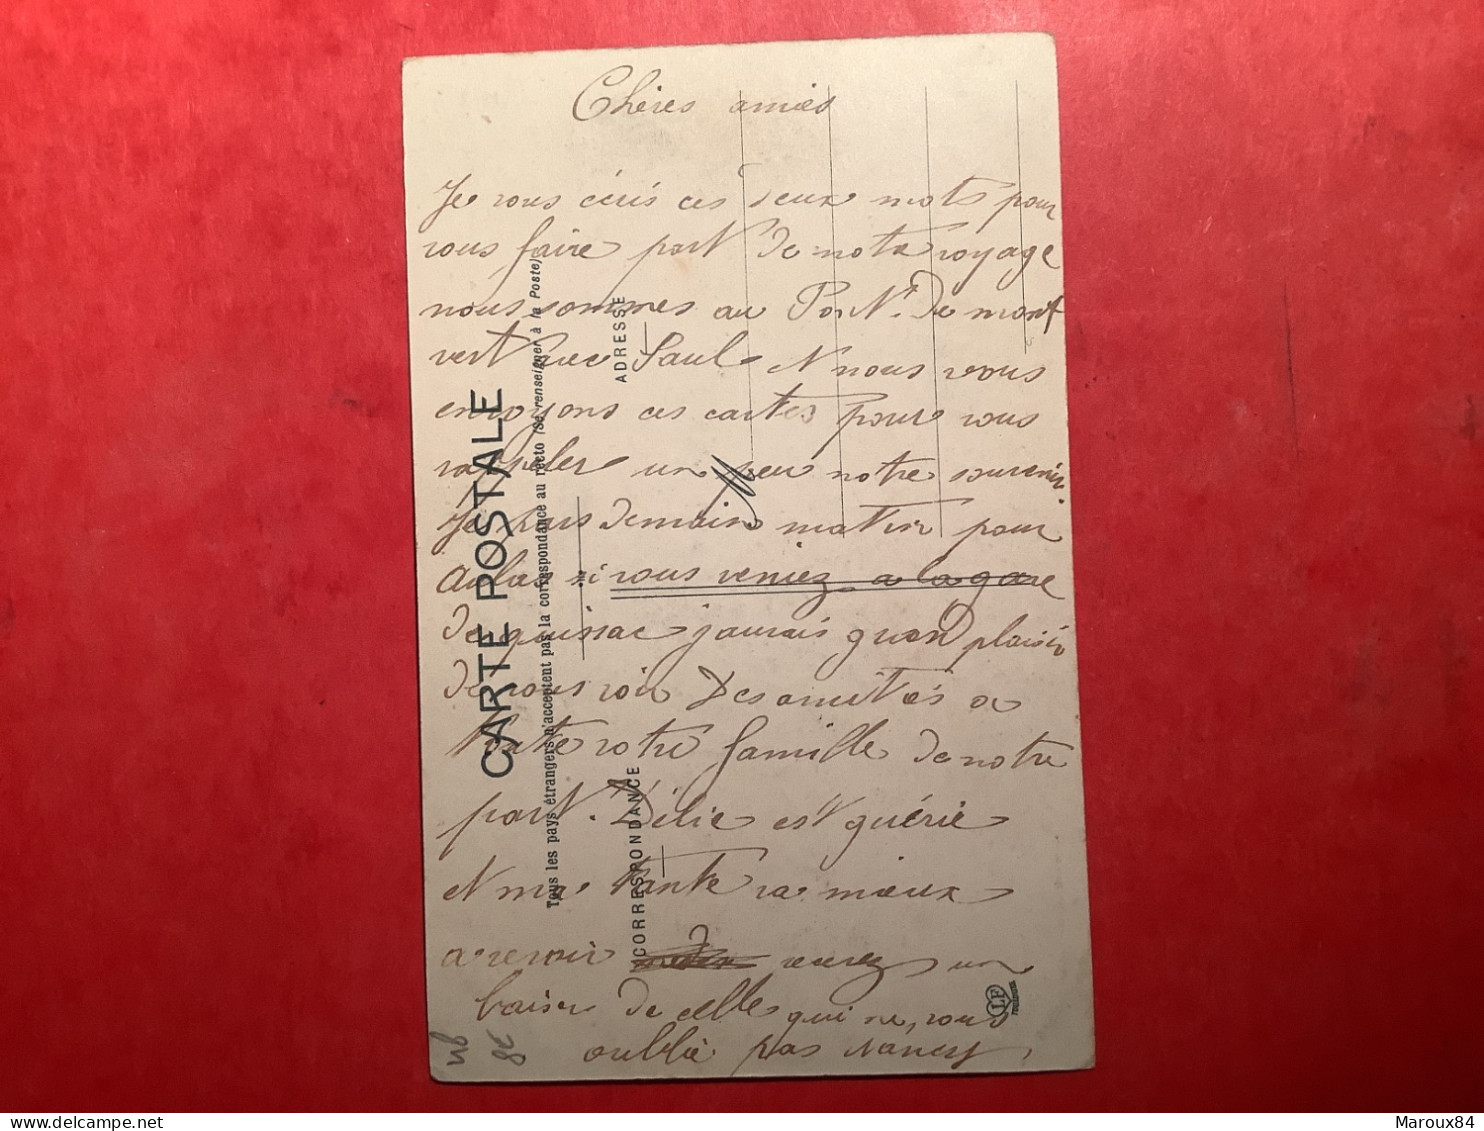 Chères amies
Je vous écris ces deux mots pour
vous faire part de notre voyage
nous sommes au Pont. de mont
vert avec Paul et nous vous
envoyons ces cartes pour vous
rappeler un peu notre souvenir.
Je pars demain matin pour
si vous veniez a la gare
de quissac j'aurais grand plaisir
de vous voir Des amitiés a
toute votre famille de notre
part. Délie est guérie
et ma tante va mieux
a revoir recevez un
baiser de celle qui ne vous
oublie pas Nancy
CARTE POSTALE
Tous les pays étrangers n'acceptent pas la correspondance au recto (Se renseigner à la Poste)
CORRESPONDANCE
ADRESSE
LF
TOULOUSE
78
Maroux84